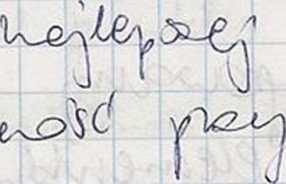 najlepszej
ność przy